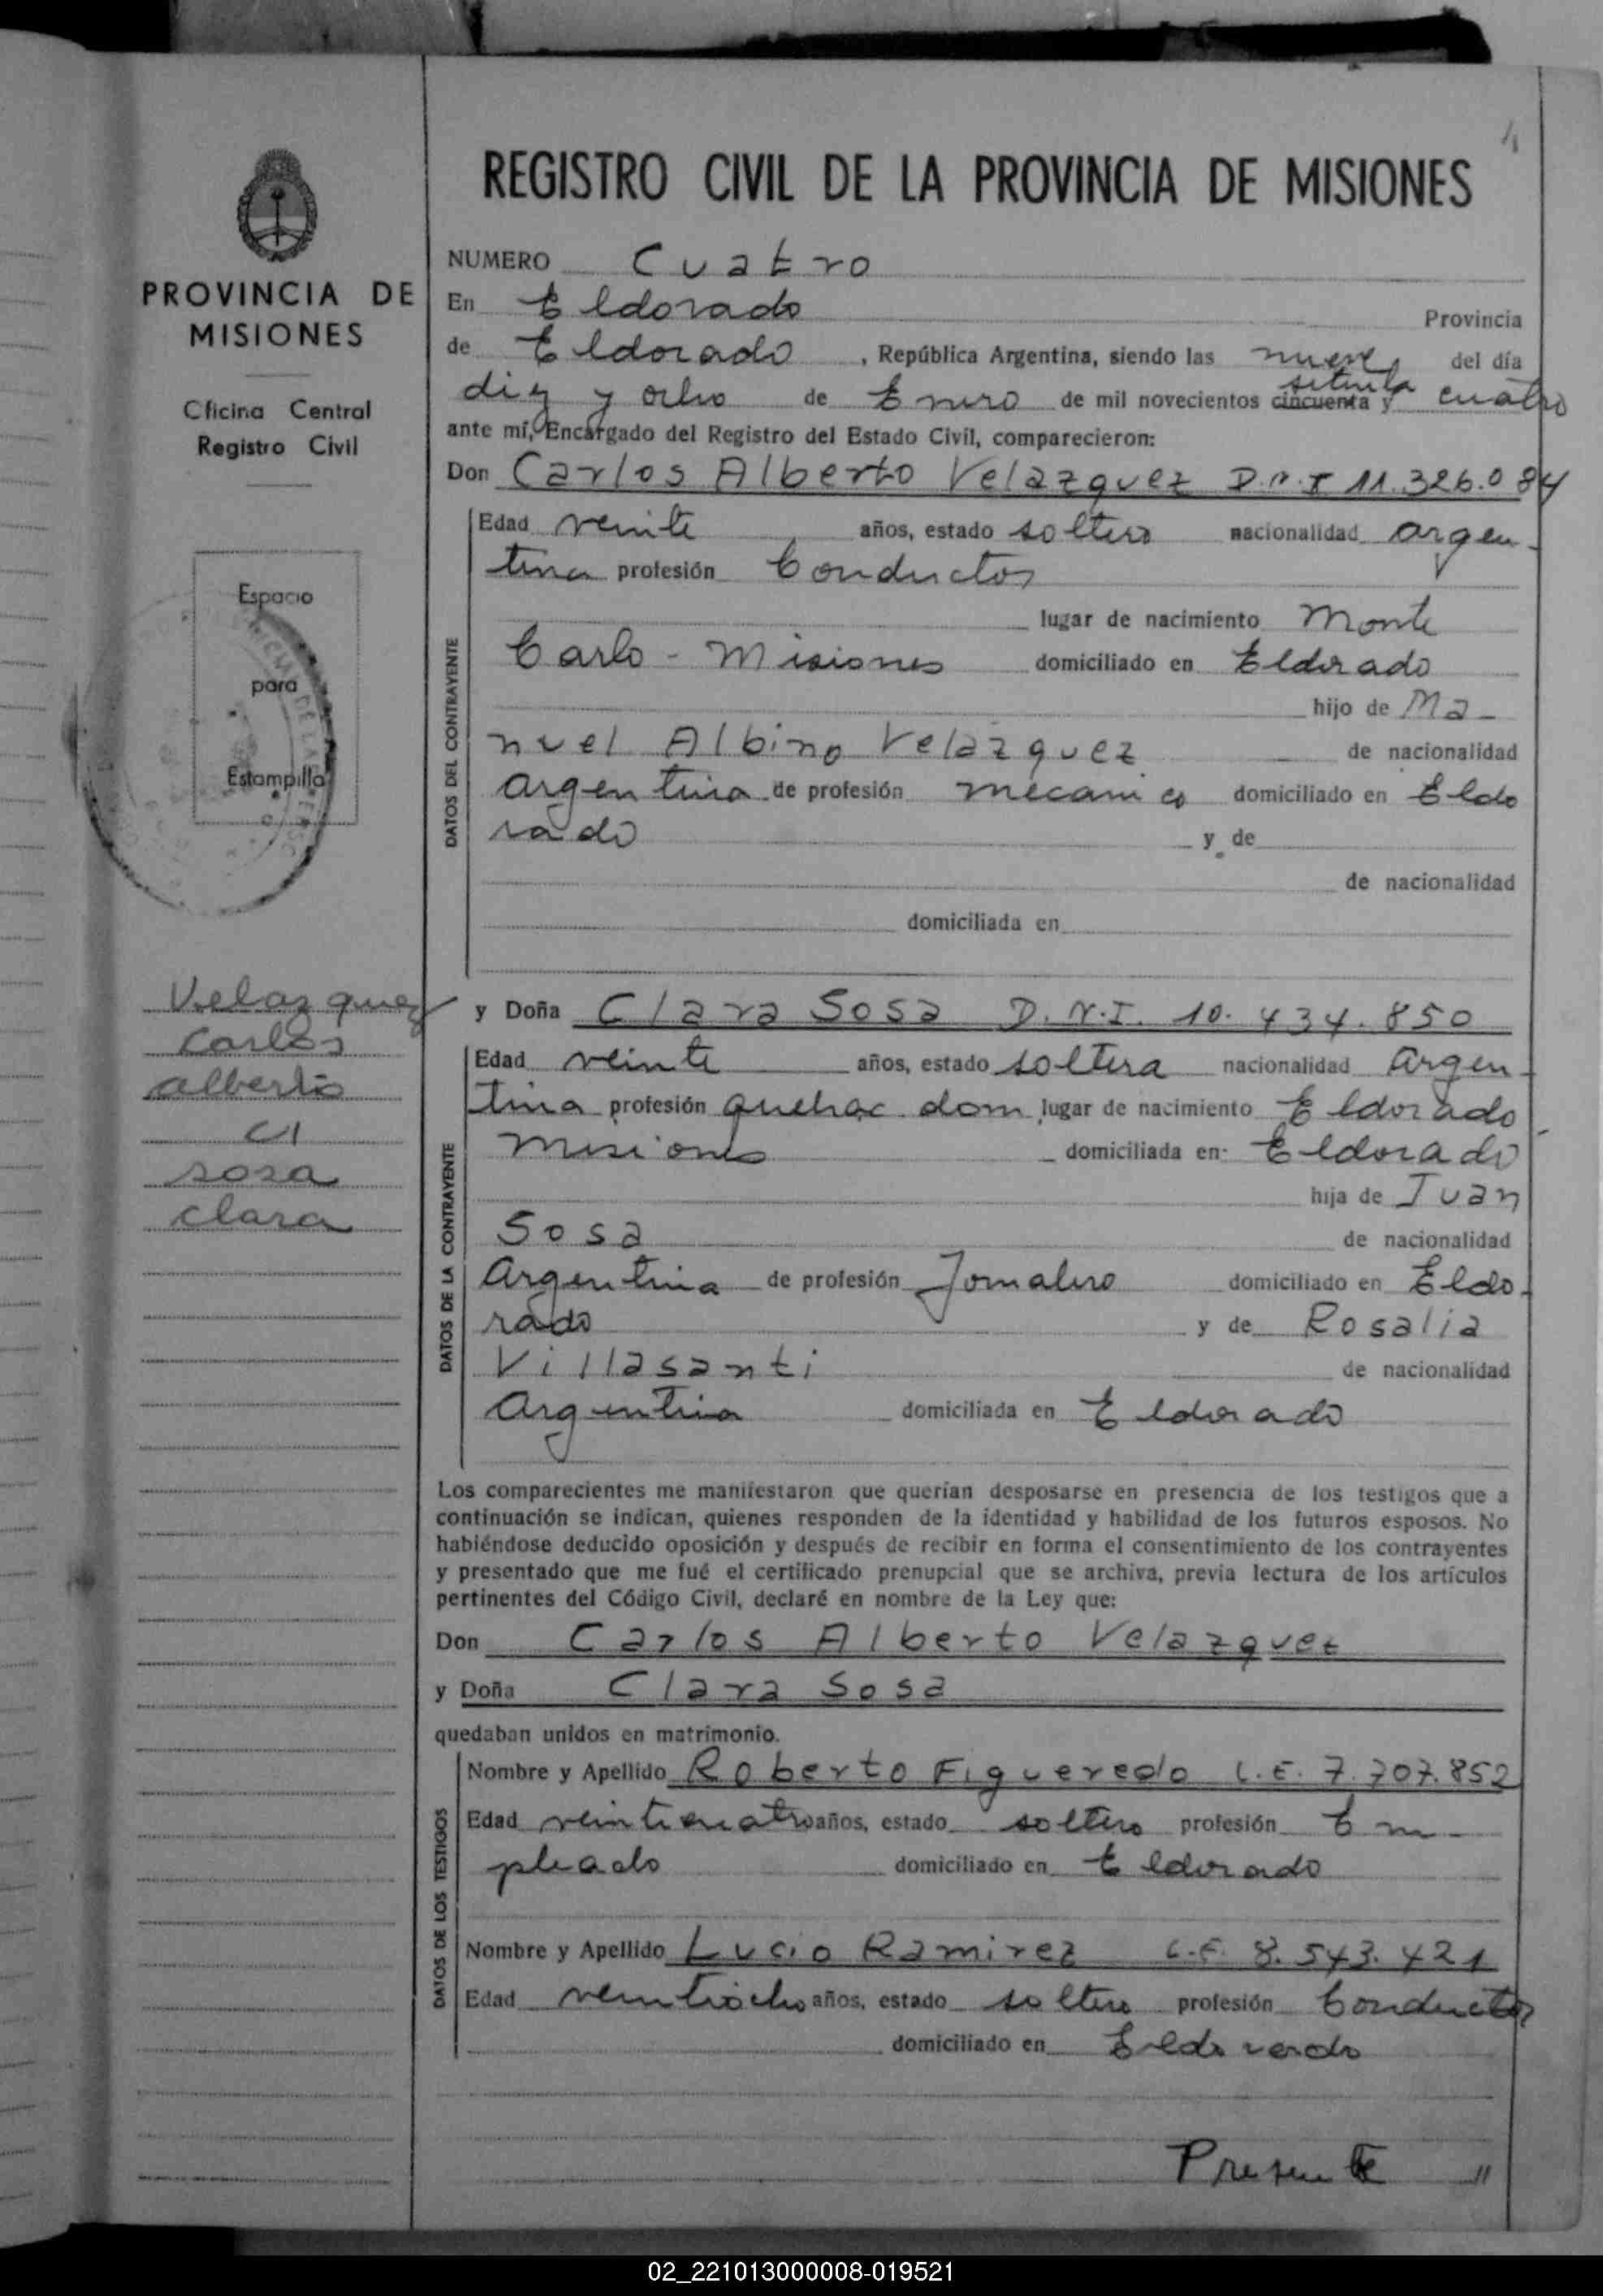 4
REGISTRO CIVIL DE LA PROVINCIA DE MISIONES
PROVINCIA DE
MISIONES
Oficina Central
Registro Civil
Espacio
para
Estampilla
Velazquez
Carlos
alberto
c/
sosa
clara
NUMERO Cuatro
En Eldorado Provincia
de Eldorado, República Argentina, siendo las nueve del día
diez y ocho de Enero de mil novecientos cincuenta y setenta cuatro
ante mí, Encargado del Registro del Estado Civil, comparecieron:
Don Carlos Alberto Velazquez D.N.I 11.326.084
DATOS DEL CONTRAYENTE
Edad veinte años, estado soltero nacionalidad argen-
tina profesión Conductor
lugar de nacimiento Monte
Carlo - Misiones domiciliado en Eldorado
hijo de Ma-
nuel Albino Velázquez de nacionalidad
argentina de profesión mecanico domiciliado en Eldo
rado y de
de nacionalidad
domiciliada en
y Doña Clara Sosa D.N.I. 10.434.850
DATOS DE LA CONTRAYENTE
Edad veinte años, estado soltera nacionalidad argen-
tina profesión quehac. dom. lugar de nacimiento Eldorado
Misiones domiciliada en Eldorado
hija de Juan
Sosa de nacionalidad
Argentina de profesión Jornalero domiciliado en Eldo-
rado y de Rosalia
Villasanti de nacionalidad
Argentina domiciliada en Eldorado
Los comparecientes me manifestaron que querían desposarse en presencia de los testigos que a
continuación se indican, quienes responden de la identidad y habilidad de los futuros esposos. No
habiéndose deducido oposición y después de recibir en forma el consentimiento de los contrayentes
y presentado que me fué el certificado prenupcial que se archiva, previa lectura de los artículos
pertinentes del Código Civil, declaré en nombre de la Ley que:
Don Carlos Alberto Velazquez
y Doña Clara Sosa
quedaban unidos en matrimonio.
DATOS DE LOS TESTIGOS
Nombre y Apellido Roberto Figueredo L.E. 7.707.852
Edad veinticuatro años, estado soltero profesión Em-
pleado domiciliado en Eldorado
Nombre y Apellido Lucio Ramirez L.E. 8.543.421
Edad veintiocho años, estado soltero profesión Conductor
domiciliado en Eldorado
Presente //
02_221013000008-019521